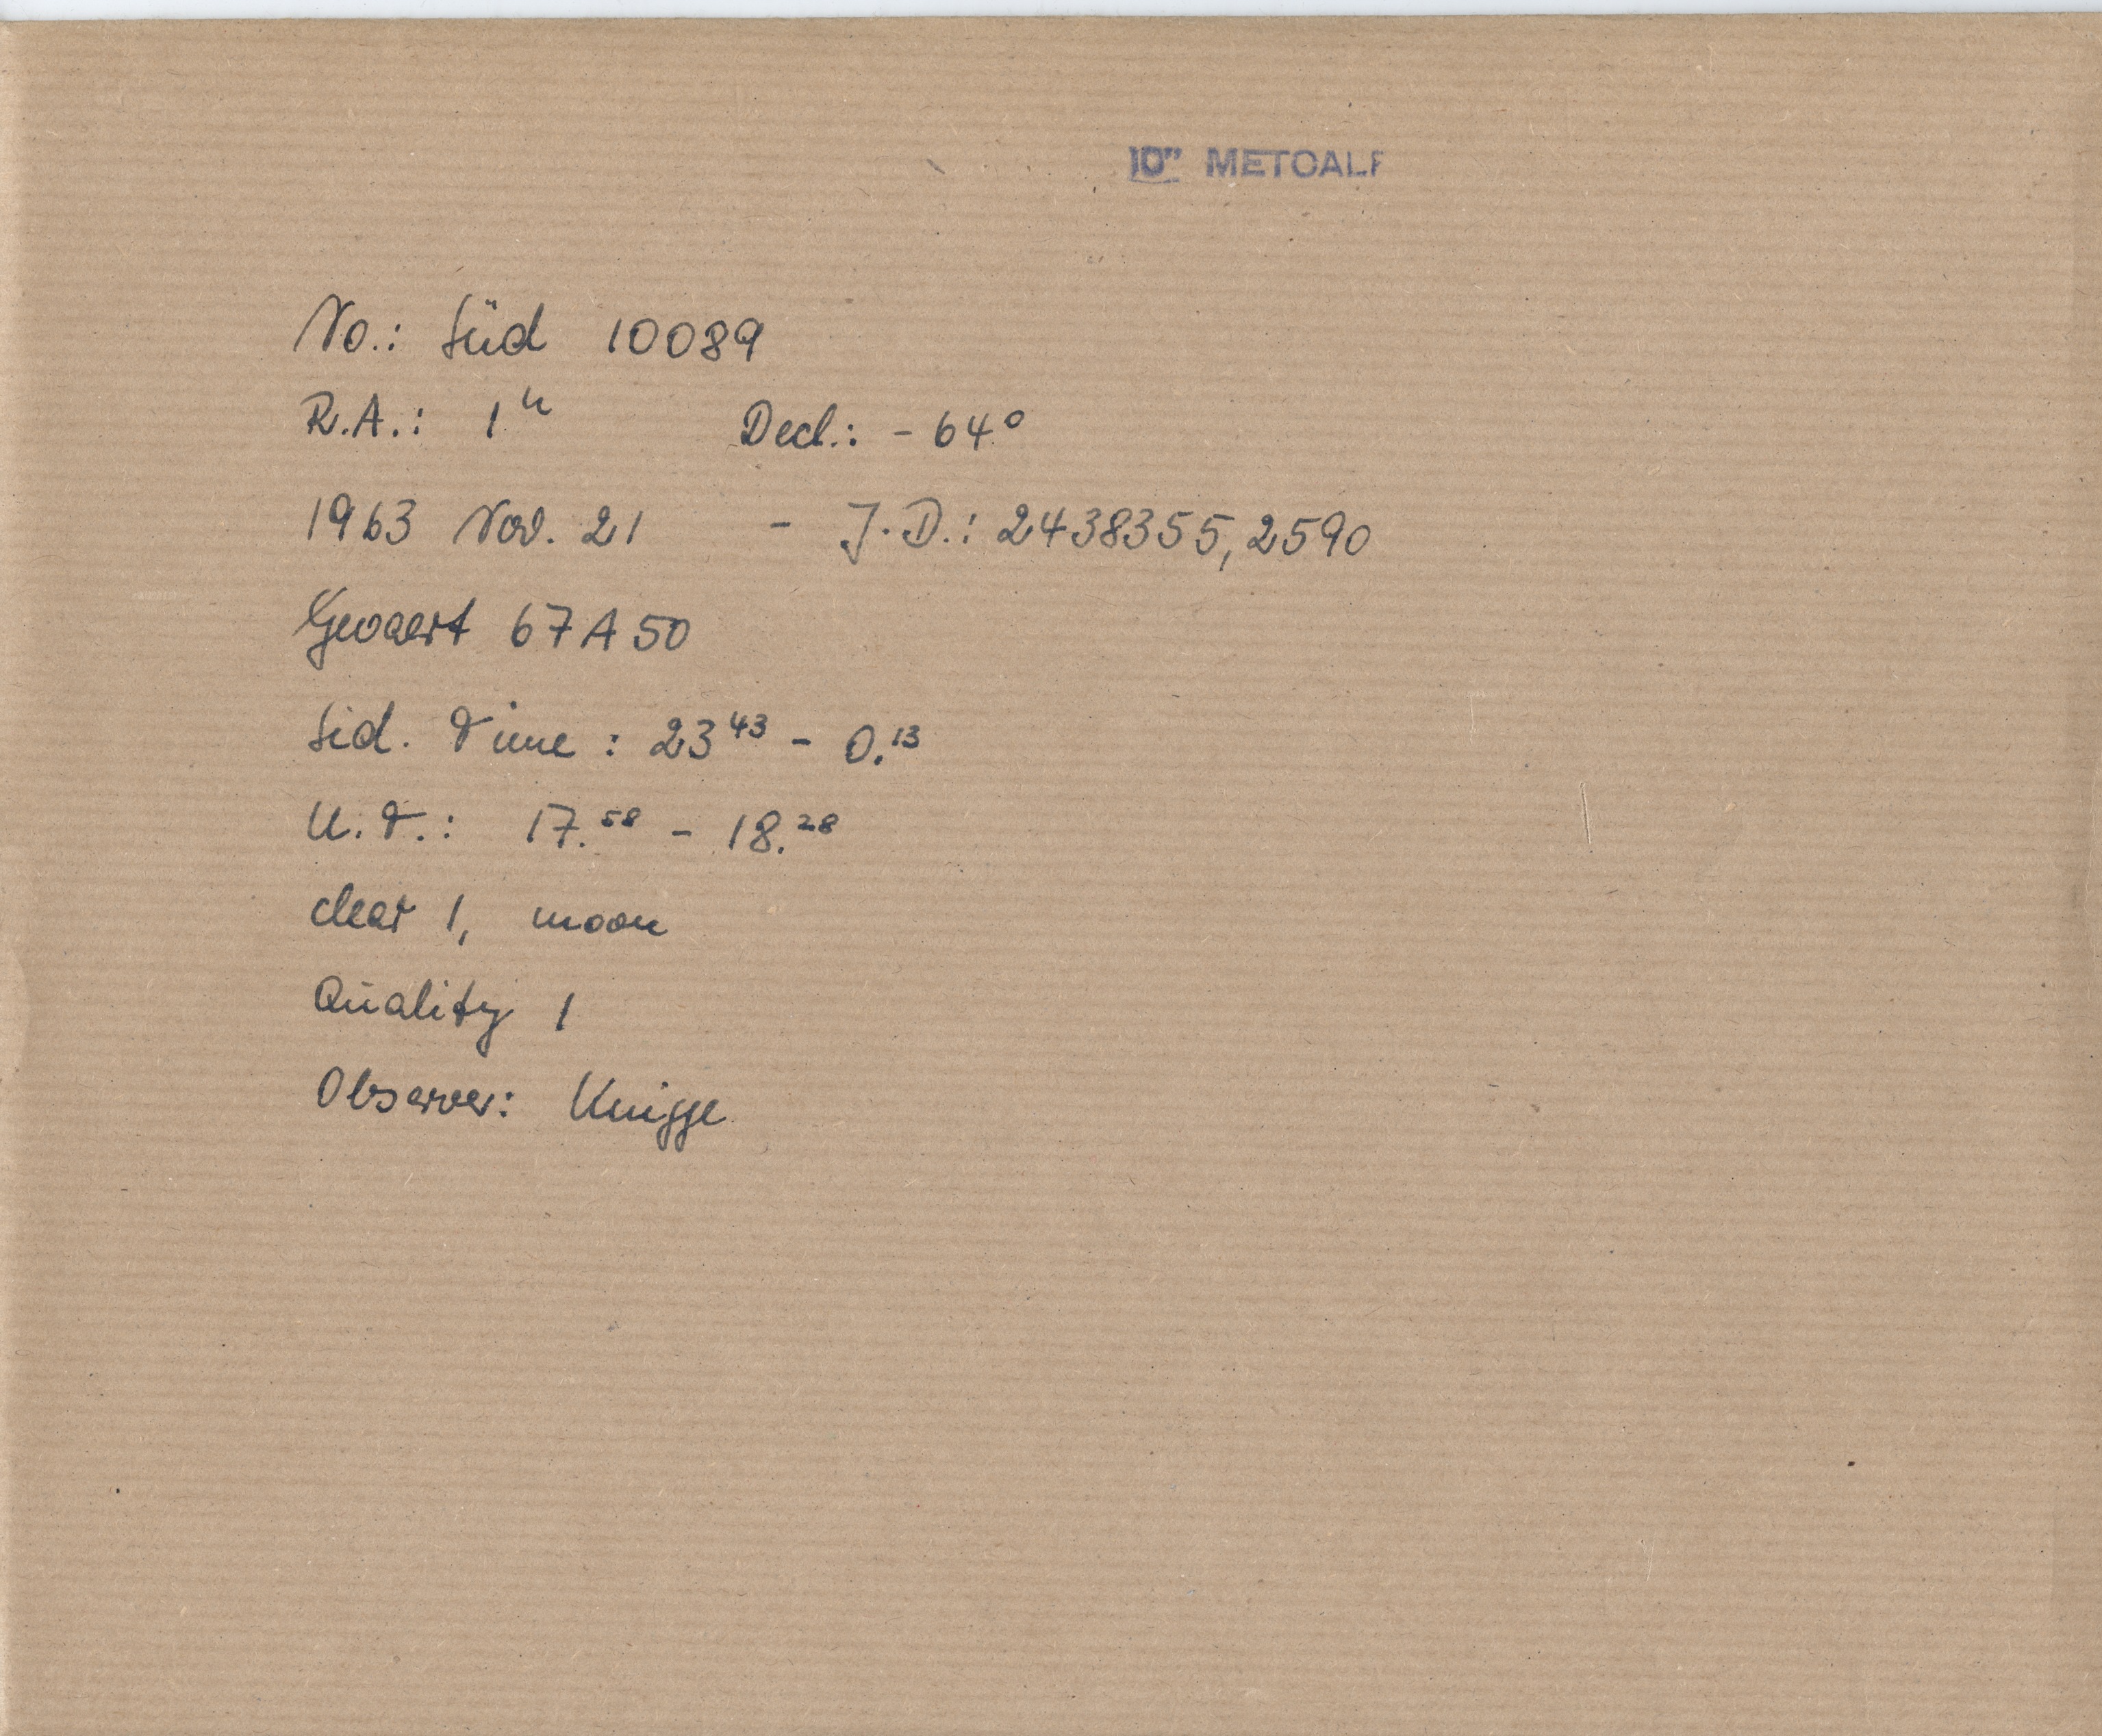 10" METCALF
No.: Süd 10089
R.A.: 1ʰ Decl.: - 64°
1963 Nov. 21 - J.D.: 2438355,2590
Gevaert 67A50
Sid. Time: 23⁴³ - 0.¹³
U.T.: 17.⁵⁸ - 18.²⁸
clear 1, moon
Quality 1
Observer: Knigge